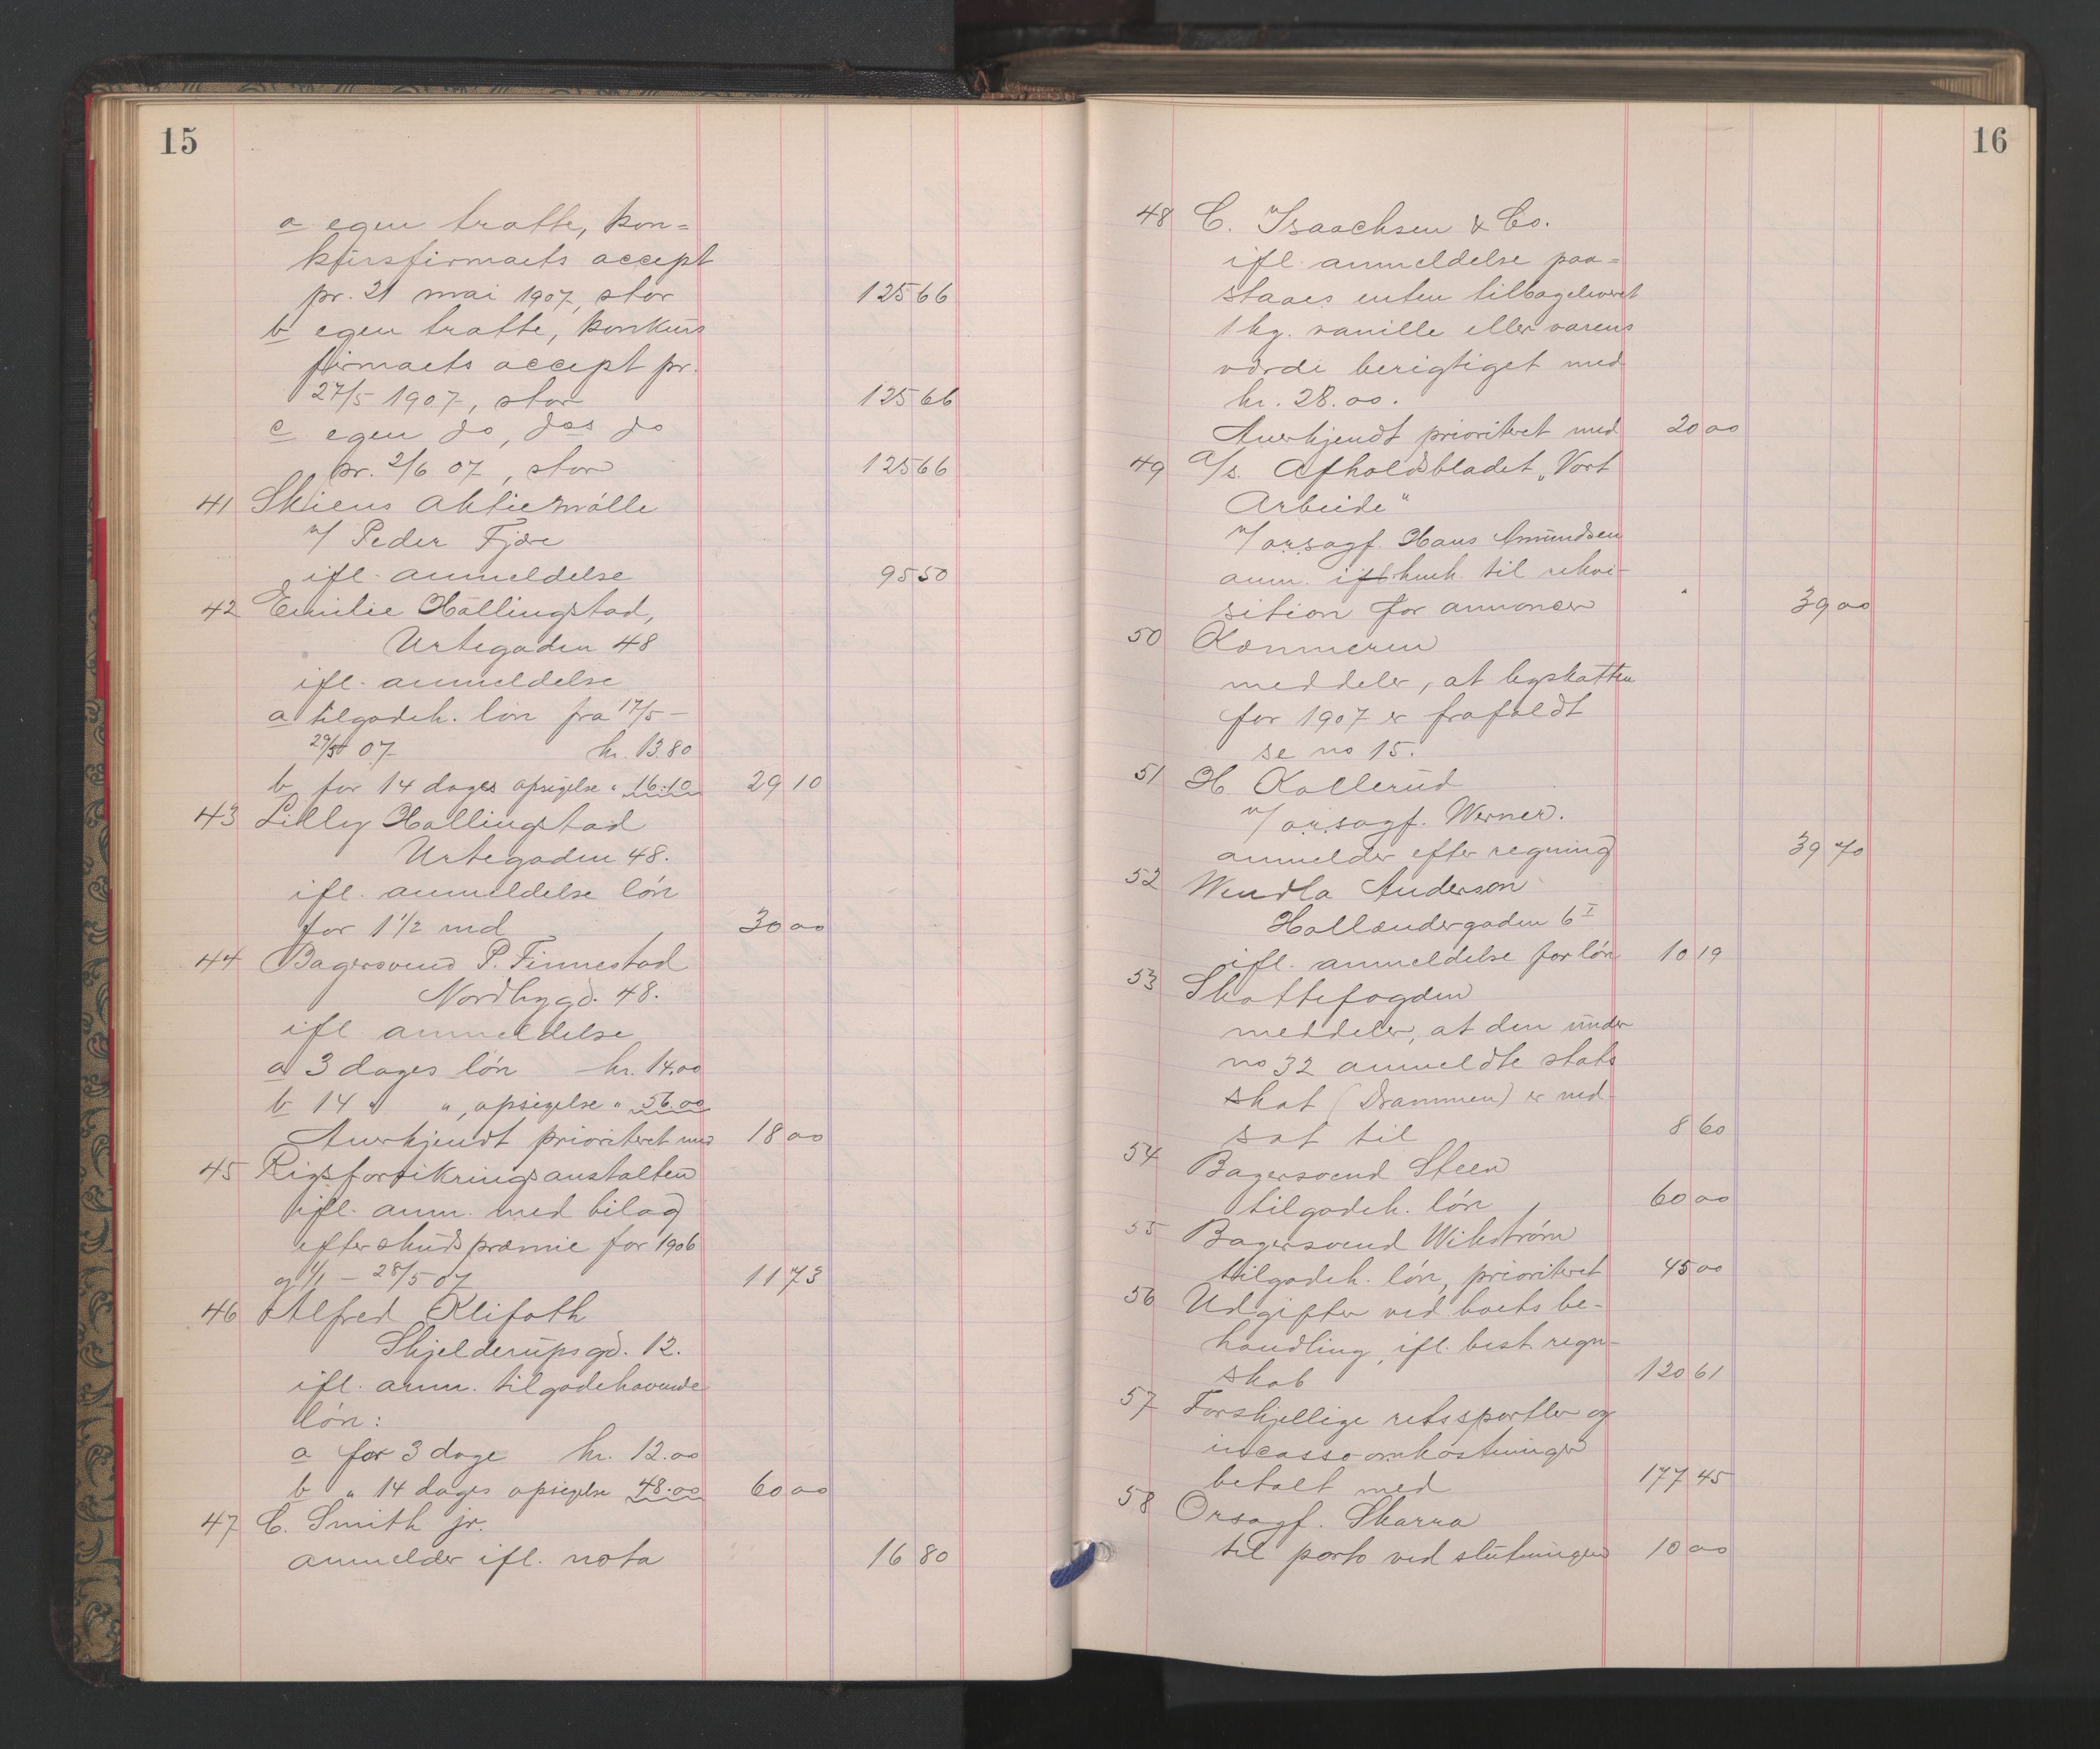 15
a egen tratte, kon=
kursfirmaets accept
pr. 21 mai 1907, stor 125 66
b egen tratte, konkurs
firmaets accept pr.
27/5 1907, stor 125 66
c egen do, dos do
pr. 2/6 07, stor 125 66
41 Skiens Aktiemølle
v/ Peder Fjære
ifl. anmeldelse 95 50
42 Emilie Hallingstad,
Urtegaden 48
ifl. anmeldelse
a tilgodeh. løn fra 17/5 –
29/5 07 kr. 13.80
b for 14 dages opsigelse " 16.10 29 10
43 Lilly Hallingstad
Urtegaden 48.
ifl. anmeldelse løn
for 1 1/2 md 30 00
44 Bagersvend P. Finnestad
Nordbygd. 48.
ifl anmeldelse
a 3 dages løn kr. 14.00
b 14 " ", opsigelse " 56.00
Anerkjendt prioriteret med 18 00
45 Rigsforsikringsanstalten
ifl. anm. med bilag
efterskudspræmie for 1906
og 1/1 – 28/5 07 11 73
46 Alfred Klifoth
Skjelderupsgd. 12.
ifl. anm. tilgodehavende
løn:
a for 3 dage kr. 12.00
b " 14 dages opsigelse 48.00 60 00
47 C. Smith jr.
anmelder ifl. nota 16 80
16
48 C. Isaachsen & Co.
ifl. anmeldelse paa=
staaes enten tilbageleveret
1 kg. vanille eller varens
værdi berigtiget med
kr. 28.00.
Anerkjendt prioriteret med 20 00
49 A/s. Afholdsbladet „Vort
Arbeide"
v/ o.r.sagf. Hans Amundsen
anm. ifl. henh. til rekvi-
sition for annoncer 39 00
50 Kæmneren
meddeler, at byskatten
for 1907 er frafaldt
se no 15.
51 H. Kollerud
v/ o.r.sagf. Werner.
anmelder efter regning 39 70
52 Wendla Anderson
Hollændergaden 6 I
ifl. anmeldelse for løn 10 19
53 Skattefogden
meddeler, at den under
no 32 anmeldte stats
skat (Drammen) er ned-
sat til 8 60
54 Bagersvend Steen
tilgodeh. løn 60 00
55 Bagersvend Wikstrøm
tilgodeh. løn, prioriteret 45 00
56 Udgifter ved boets be-
handling, ifl. best. regn-
skab 120 61
57 Forskjellige retssportler og
incassoomkostninger
betalt med 177 45
58 Orsagf. Skarra
til porto ved slutningen 10 00